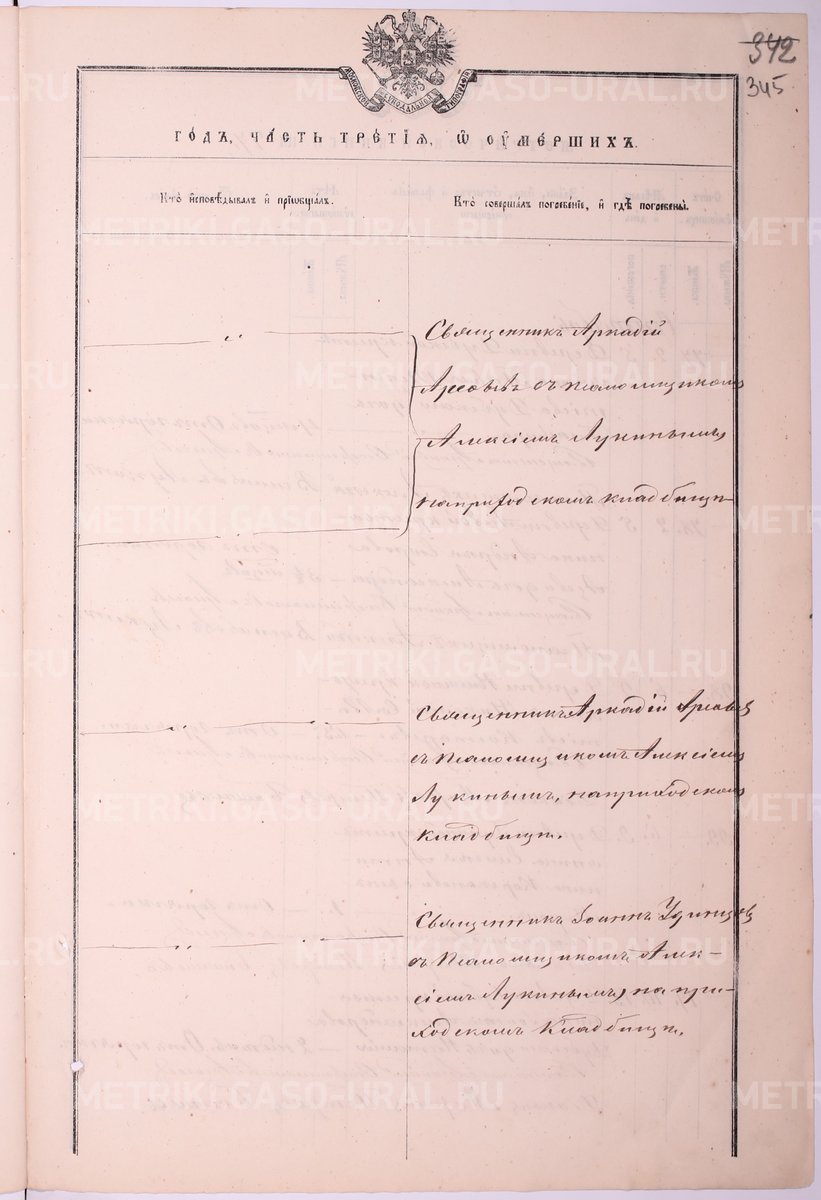 342
345
МОСКОВСКОЙ СѴНОДАЛЬНОЙ ТИПОГРАФІИ
ГО́ДЪ, ЧА́СТЬ ТРЕ́ТІѦ, Ѽ ОУ҆МЕ́РШИХЪ.
Кто̀ и҆сповѣ́дывалъ и҆ прїѡбща́лъ.
Кто̀ соверша́лъ погребе́нїе, и҆ гдѣ̀ погребены̀.
Священникъ Аркадій
съ псаломщикомъ
Алексіемъ Лукинымъ,
на приходскомъ кладбищѣ
Священникъ Аркадій
съ псаломщикомъ Алексіемъ
Лукинымъ, на приходскомъ
кладбищѣ.
Священникъ Іоаннъ Удинцевъ
съ псаломщикомъ Алек-
сіемъ Лукинымъ, на при-
ходскомъ кладбищѣ.
METRIKI.GASO-URAL.RU